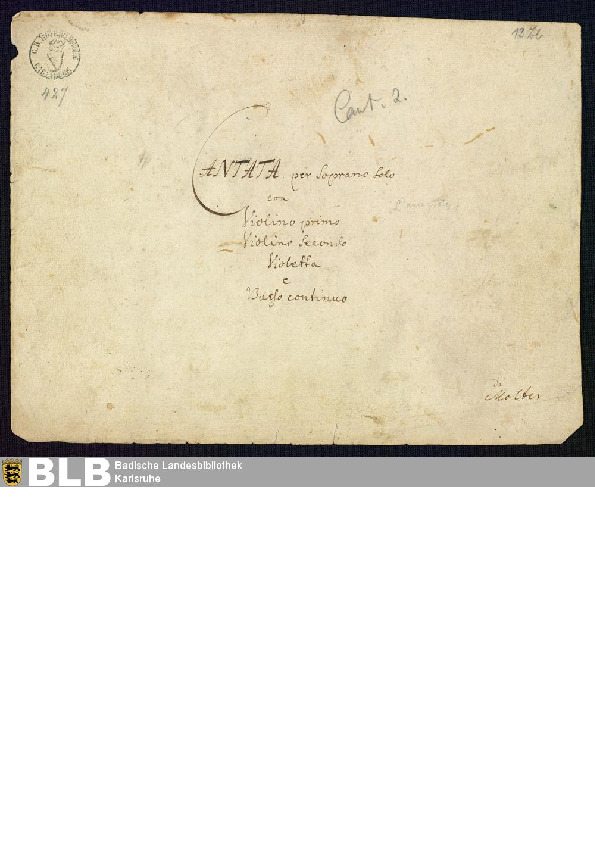 427
Cant. 2.
CANTATA per Soprano Solo
con
Violino primo
Violino Secondo
Violetta
e
Basso continuo
Da
Molter
BLB
Badische Landesbibliothek
Karlsruhe